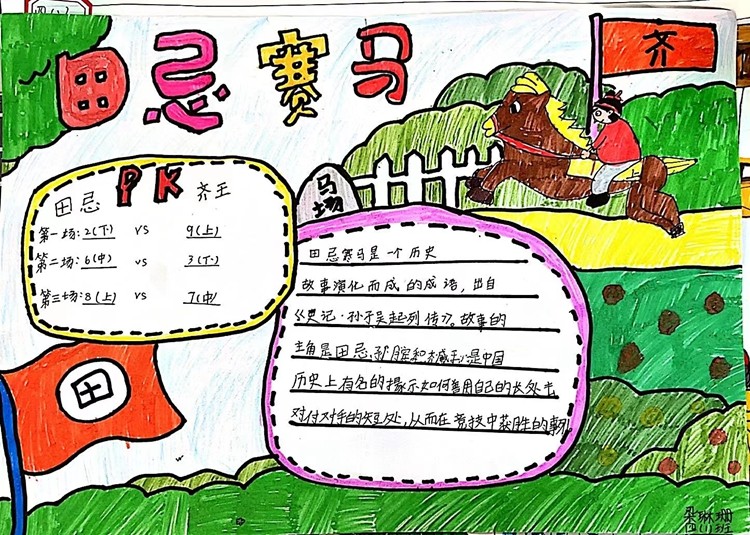 田忌赛马
齐
田忌 PK 齐王
第一场:2(下) vs 9(上)
第二场:6(中) vs 3(下)
第三场:8(上) vs 7(中)
马场
田忌赛马是一个历史
故事演化而成的成语，出自
《史记·孙子吴起列传》。故事的
主角是田忌,孙膑和齐威王,是中国
历史上有名的揭示如何善用自己的长处去
对付对手的短处,从而在竞技中获胜的事例
田
四(1)班